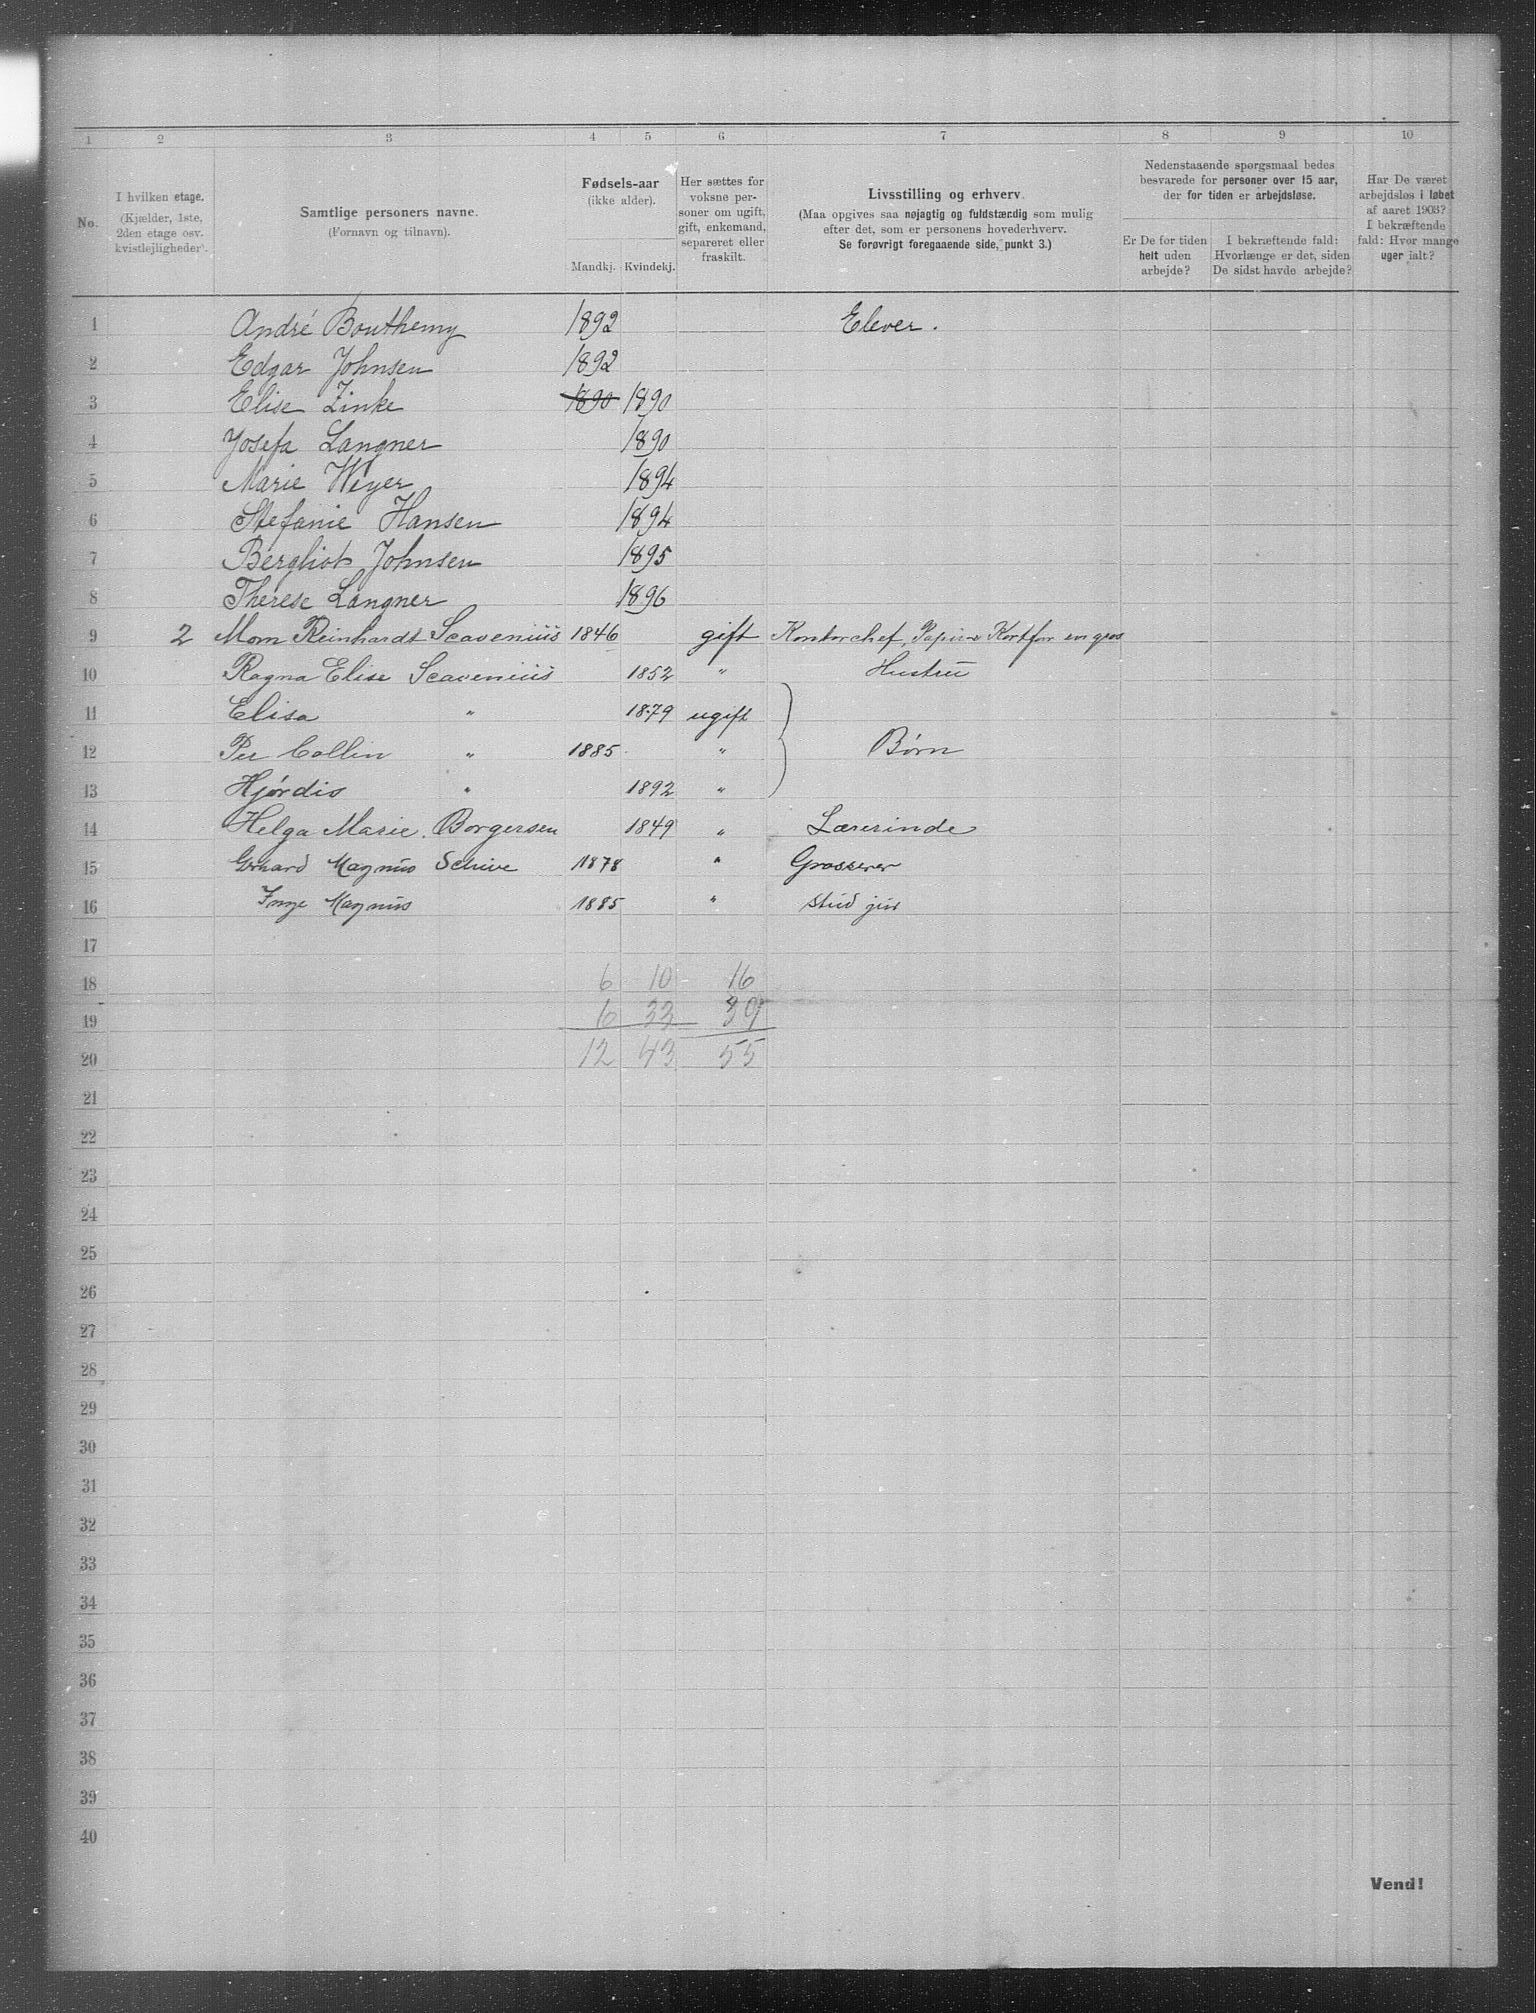 1 2 3 4 5 6 7 8 9 10
No.
I hvilken etage.
(Kjælder, 1ste,
2den etage osv.
kvistlejligheder).
Samtlige personers navne.
(Fornavn og tilnavn).
Fødsels-aar
(ikke alder).
Mandkj. Kvindekj.
Her sættes for
voksne per-
soner om ugift,
gift, enkemand,
separeret eller
fraskilt.
Livsstilling og erhverv.
(Maa opgives saa nøjagtig og fuldstærdig som mulig
efter det, som er personens hovederhverv.
Se forøvrigt foregaaende side, punkt 3.)
Nedenstaaende spørgsmaal bedes
besvarede for personer over 15 aar,
der for tiden er arbejdsløse.
Er De for tiden
helt uden
arbejde?
I bekræftende fald:
Hvorlænge er det, siden
De sidst havde arbejde?
Har De været
arbejdsløs i løbet
af aaret 1903?
I bekræftende
fald: Hvor mange
uger ialt?
1 André Bouthemy 1892 Elever.
2 Edgar Johnsen 1892
3 Elise Zinke 1890 1890
4 Josefa Langner 1890
5 Marie Weyer 1894
6 Stefanie Hansen 1894
7 Bergliot Johnsen 1895
8 Therese Langner 1896
9 2 Morn Reinhardt Scavenius 1846 gift Kontorchef, Papir & Kortforr en gros
10 Ragna Elise Scavenius 1852 " Hustru
11 Elisa " 1879 ugift
12 Per Collin " 1885 " Børn
13 Hjørdis " 1892 "
14 Helga Marie Borgersen 1849 " Lærerinde
15 Gerhard Magnus Schive 1878 " Grosserer
16 Inge Magnus 1885 " stud jur
17
18 6 10 16
19 6 33 39
20 12 43 55
21
22
23
24
25
26
27
28
29
30
31
32
33
34
35
36
37
38
39
40
Vend!